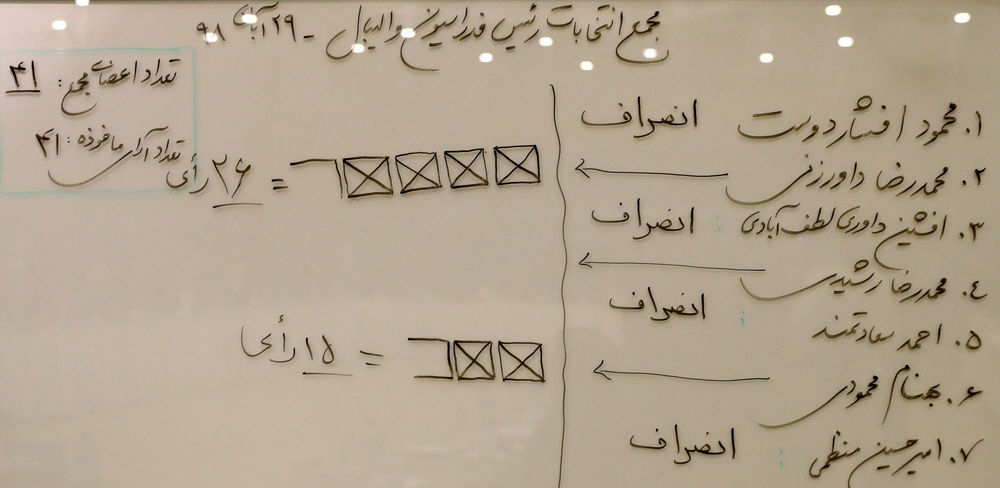 مجمع انتخابات رئیس فدراسیون والیبال - ۲۹ آبان ۹۸
تعداد اعضای مجمع: ۴۱
تعداد آرای ماخوذه: ۴۱
۱. محمود افشاردوست انصراف
۲. محمدرضا داورزنی = ۲۶ رأی
۳. افشین داوری لطف‌آبادی انصراف
۴. محمدرضا رشیدی
۵. احمد سعادتمند انصراف
۶. بهنام محمودی = ۱۵ رأی
۷. امیرحسین منظمی انصراف